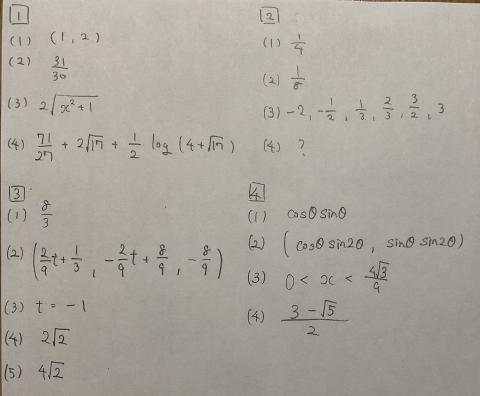 1
(1) (1, 2)
(2) 31/30
(3) 2√(x²+1)
(4) 71/27 + 2√17 + 1/2 log(4+√17)
2
(1) 1/4
(2) 1/8
(3) -2, -1/2, 1/3, 2/3, 3/2, 3
(4) ?
3
(1) 8/3
(2) (2/9 t + 1/3, -2/9 t + 8/9, -8/9)
(3) t = -1
(4) 2√2
(5) 4√2
4
(1) cosθ sinθ
(2) (cosθ sin2θ, sinθ sin2θ)
(3) 0 < x < 4√3/9
(4) (3-√5)/2